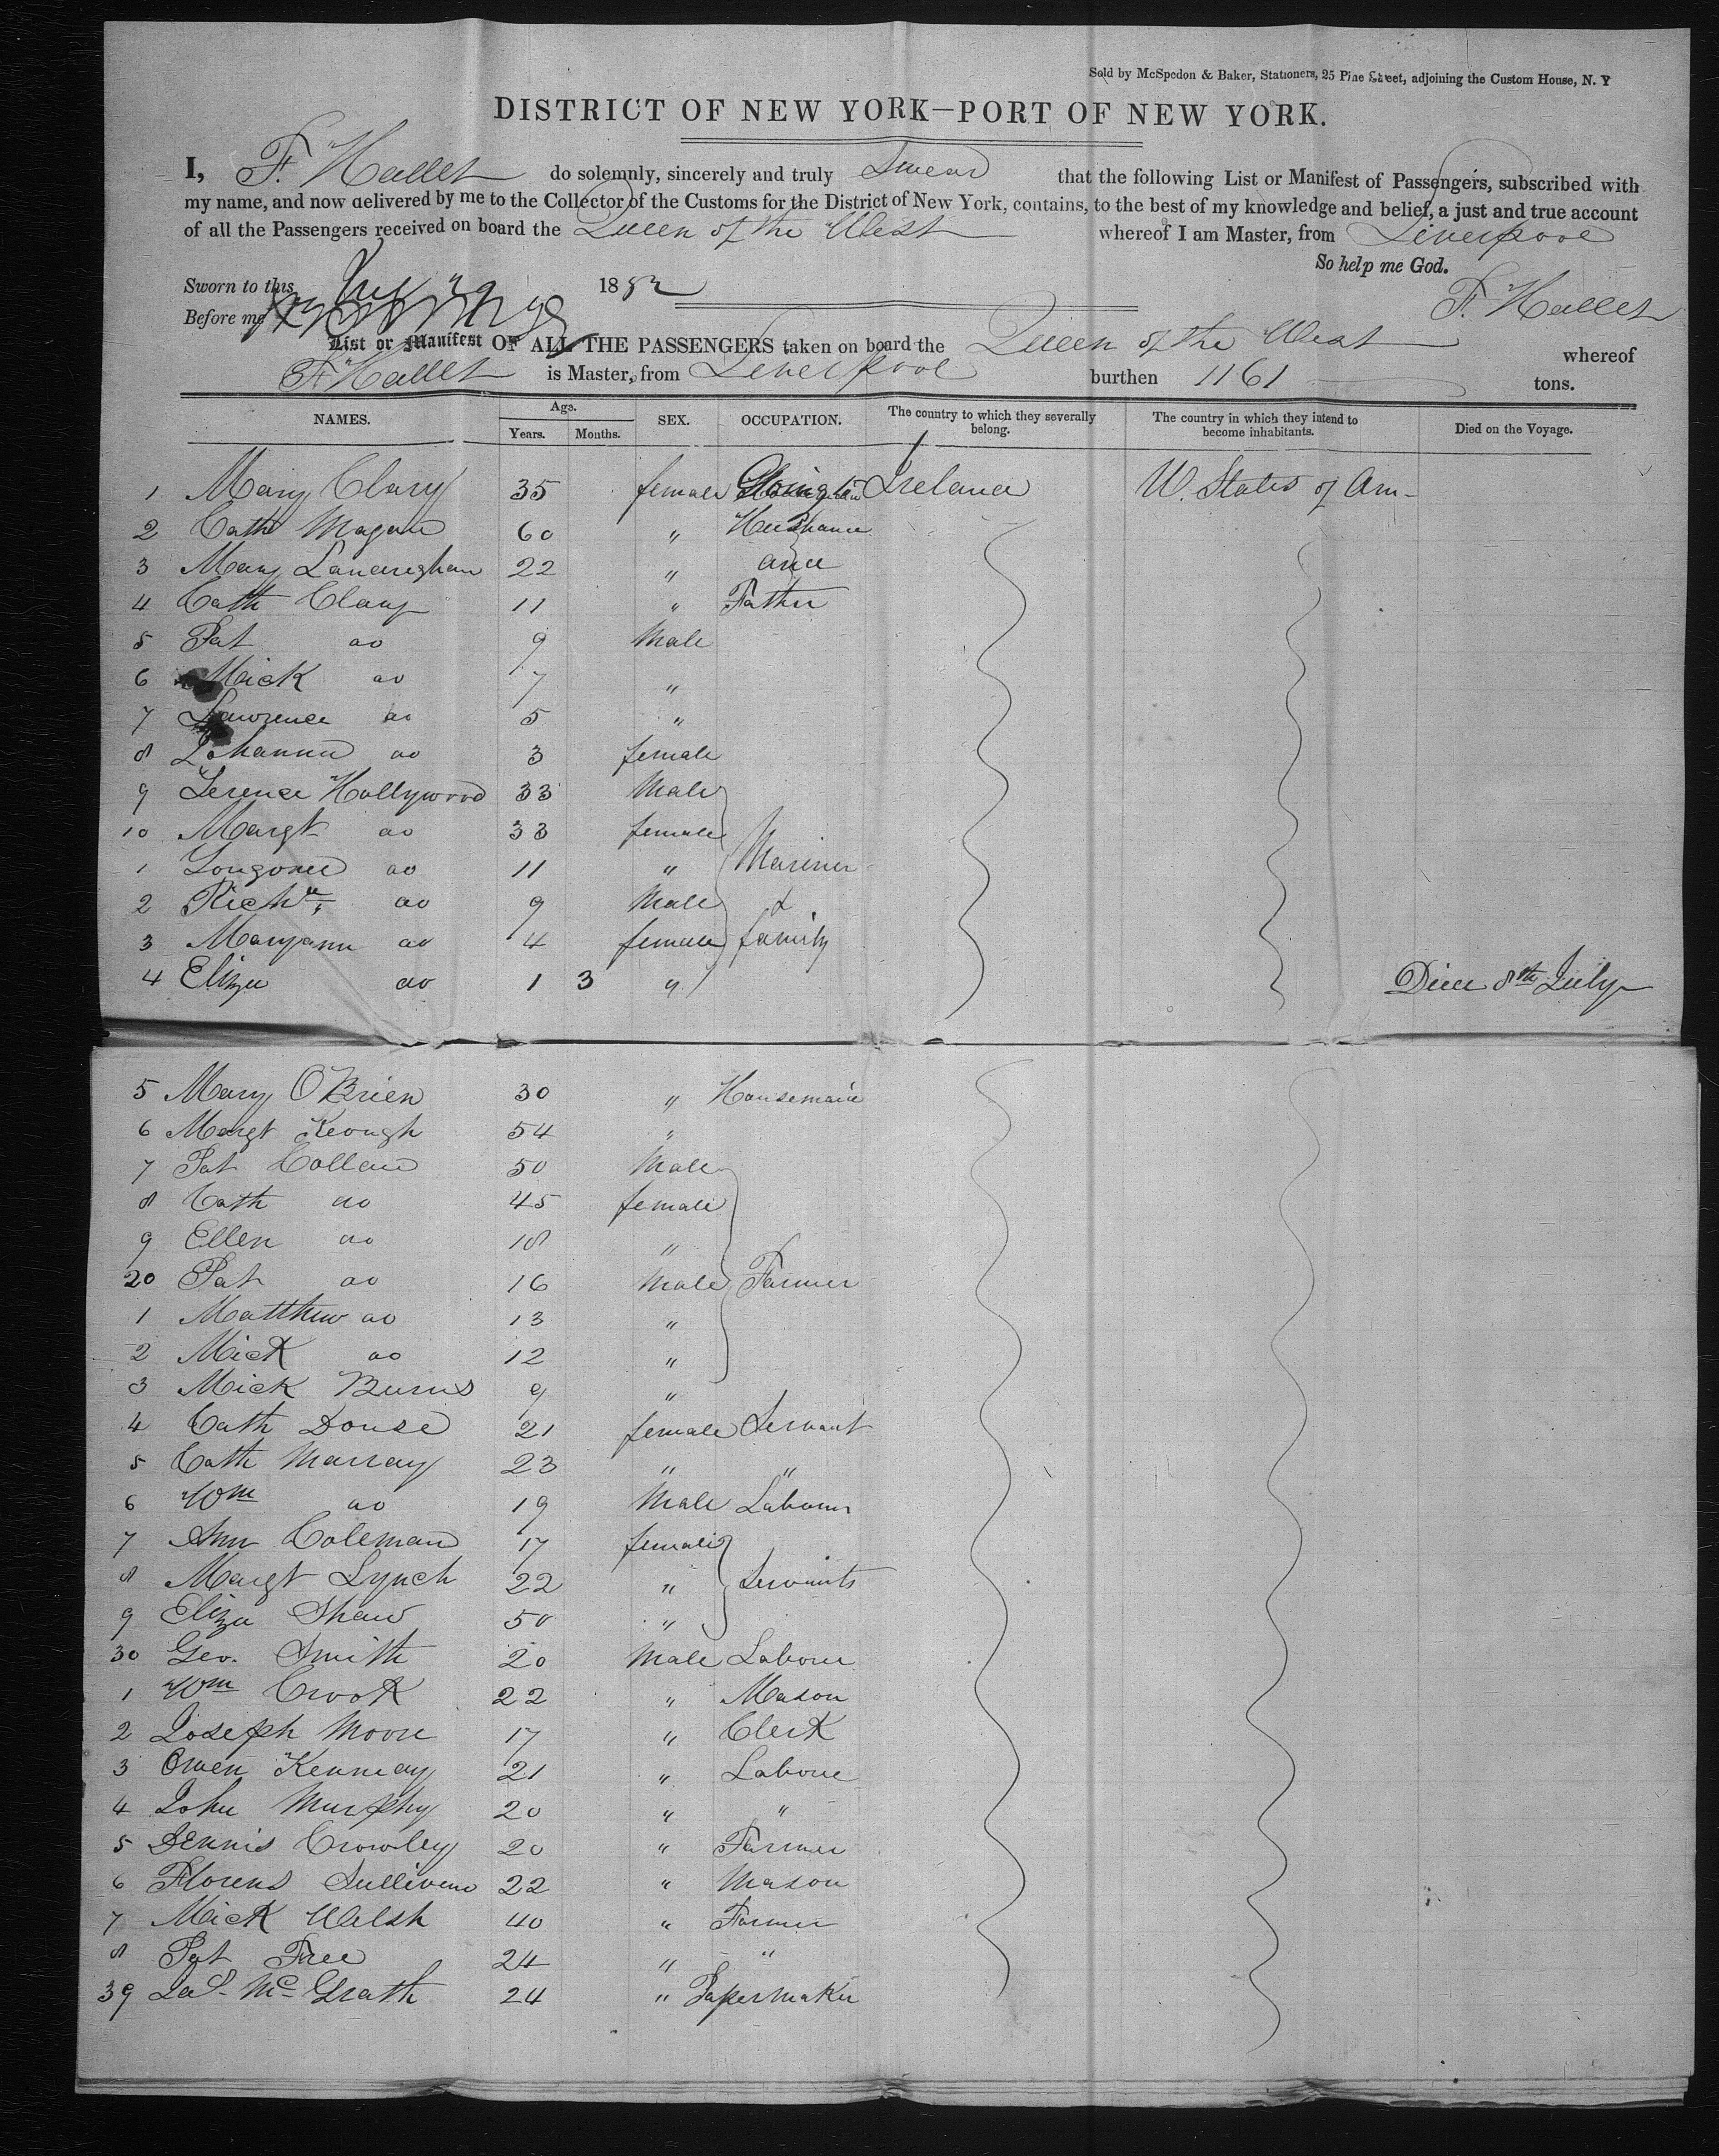 Sold by McSpedon & Baker, Stationers, 25 Pine Street, adjoining the Custom House, N. Y
DISTRICT OF NEW YORK—PORT OF NEW YORK.
I, F. Hallet do solemnly, sincerely and truly Swear that the following List or Manifest of Passengers, subscribed with
my name, and now delivered by me to the Collector of the Customs for the District of New York, contains, to the best of my knowledge and belief, a just and true account
of all the Passengers received on board the Queen of the West whereof I am Master, from Liverpool
So help me God.
Sworn to this July 29 1852
F. Hallet
Before me
List or Manifest OF ALL THE PASSENGERS taken on board the Queen of the West whereof
F Hallet is Master, from Liverpool burthen 1161 tons.
NAMES. Age. Years. Months. SEX. OCCUPATION. The country to which they severally belong. The country in which they intend to become inhabitants. Died on the Voyage.
1 Mary Clary 35 female Going to Ireland U. States of Am-
2 Cath Magan 60 " Husband
3 Mary Landreghan 22 " and
4 Cath Clary 11 " Father
5 Pat do 9 Male
6 Mick do 7 "
7 Lawrence do 5 "
8 Johanna do 3 female
9 Terence Hollywood 33 Male
10 Margt do 33 female
1 do 11 " Mariner
2 Richd do 9 Male &
3 Maryann do 4 female family
4 Eliza do 1 3 " Died 8th July
5 Mary O'Brien 30 " Housemaid
6 Margt Keough 54 "
7 Pat Collan 50 Male
8 Cath do 45 female
9 Ellen do 18 "
20 Pat do 16 Male Farmer
1 Matthew do 13 "
2 Mick do 12 "
3 Mick Burns 9 "
4 Cath Douse 21 female Servant
5 Cath Murray 23 " "
6 Wm do 19 Male Labourer
7 Ann Coleman 17 female
8 Margt Lynch 22 " Servants
9 Eliza Shaw 50 "
30 Geo. Smith 20 Male Labour
1 Wm Crook 22 " Mason
2 Joseph Moore 17 " Clerk
3 Owen Kennedy 21 " Labour
4 John Murphy 20 " "
5 Dennis Crowley 20 " Farmer
6 Florens Sullivan 22 " Mason
7 Mick Welsh 40 " Farmer
8 Pat Free 24 " "
39 Jas McGrath 24 " Papermaker